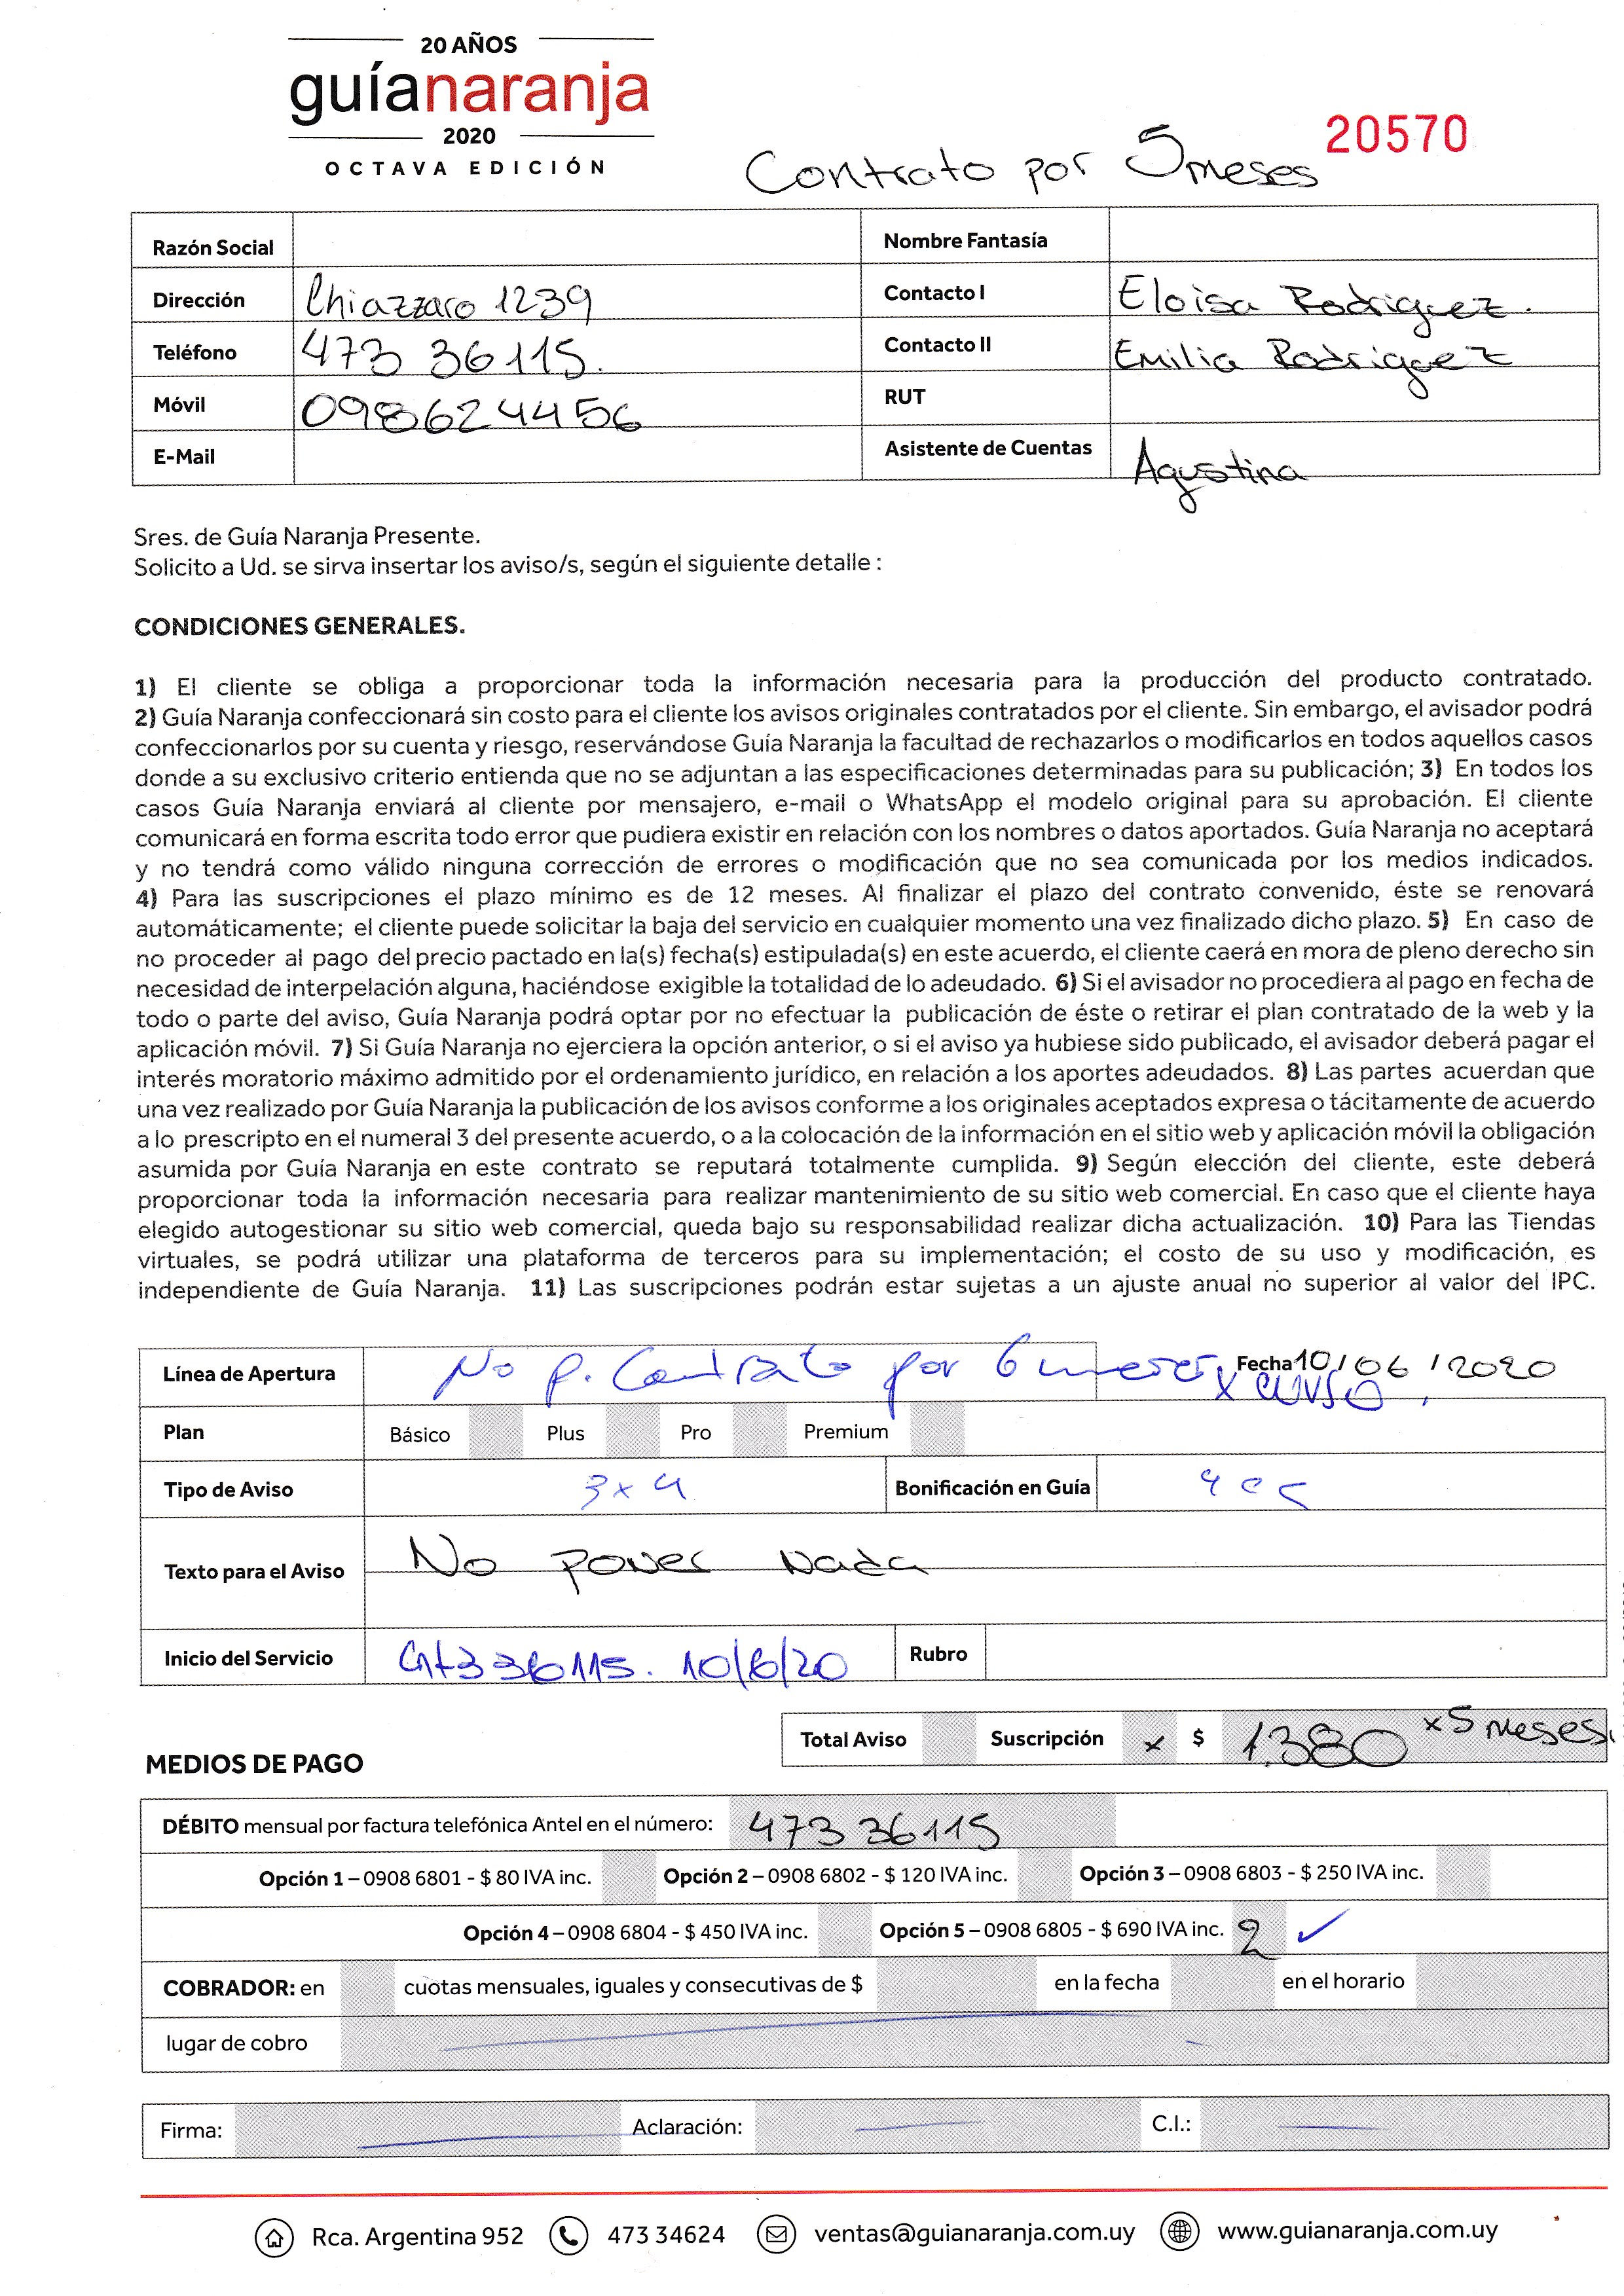 20 AÑOS
guíanaranja
2020
OCTAVA EDICIÓN
20570
Contrato por 5 meses
Razón Social
Nombre Fantasía
Dirección Chiazzaro 1239
Contacto I Eloisa Rodriguez.
Teléfono 473 36115.
Contacto II Emilia Rodriguez
Móvil 098624456
RUT
E-Mail
Asistente de Cuentas Agustina
Sres. de Guía Naranja Presente.
Solicito a Ud. se sirva insertar los aviso/s, según el siguiente detalle :
CONDICIONES GENERALES.
1) El cliente se obliga a proporcionar toda la información necesaria para la producción del producto contratado.
2) Guía Naranja confeccionará sin costo para el cliente los avisos originales contratados por el cliente. Sin embargo, el avisador podrá
confeccionarlos por su cuenta y riesgo, reservándose Guía Naranja la facultad de rechazarlos o modificarlos en todos aquellos casos
donde a su exclusivo criterio entienda que no se adjuntan a las especificaciones determinadas para su publicación; 3) En todos los
casos Guía Naranja enviará al cliente por mensajero, e-mail o WhatsApp el modelo original para su aprobación. El cliente
comunicará en forma escrita todo error que pudiera existir en relación con los nombres o datos aportados. Guía Naranja no aceptará
y no tendrá como válido ninguna corrección de errores o modificación que no sea comunicada por los medios indicados.
4) Para las suscripciones el plazo mínimo es de 12 meses. Al finalizar el plazo del contrato convenido, éste se renovará
automáticamente; el cliente puede solicitar la baja del servicio en cualquier momento una vez finalizado dicho plazo. 5) En caso de
no proceder al pago del precio pactado en la(s) fecha(s) estipulada(s) en este acuerdo, el cliente caerá en mora de pleno derecho sin
necesidad de interpelación alguna, haciéndose exigible la totalidad de lo adeudado. 6) Si el avisador no procediera al pago en fecha de
todo o parte del aviso, Guía Naranja podrá optar por no efectuar la publicación de éste o retirar el plan contratado de la web y la
aplicación móvil. 7) Si Guía Naranja no ejerciera la opción anterior, o si el aviso ya hubiese sido publicado, el avisador deberá pagar el
interés moratorio máximo admitido por el ordenamiento jurídico, en relación a los aportes adeudados. 8) Las partes acuerdan que
una vez realizado por Guía Naranja la publicación de los avisos conforme a los originales aceptados expresa o tácitamente de acuerdo
a lo prescripto en el numeral 3 del presente acuerdo, o a la colocación de la información en el sitio web y aplicación móvil la obligación
asumida por Guía Naranja en este contrato se reputará totalmente cumplida. 9) Según elección del cliente, este deberá
proporcionar toda la información necesaria para realizar mantenimiento de su sitio web comercial. En caso que el cliente haya
elegido autogestionar su sitio web comercial, queda bajo su responsabilidad realizar dicha actualización. 10) Para las Tiendas
virtuales, se podrá utilizar una plataforma de terceros para su implementación; el costo de su uso y modificación, es
independiente de Guía Naranja. 11) Las suscripciones podrán estar sujetas a un ajuste anual no superior al valor del IPC.
Línea de Apertura No p. Contrato por 6 meses x curso
Fecha 10/06/2020
Plan Básico Plus Pro Premium
Tipo de Aviso 3x4
Bonificación en Guía
Texto para el Aviso No poner nada
Inicio del Servicio 47336115. 10/6/20
Rubro
Total Aviso Suscripción x $ 1.380 x 5 meses
MEDIOS DE PAGO
DÉBITO mensual por factura telefónica Antel en el número: 473 36115
Opción 1 – 0908 6801 - $ 80 IVA inc. Opción 2 – 0908 6802 - $ 120 IVA inc. Opción 3 – 0908 6803 - $ 250 IVA inc.
Opción 4 – 0908 6804 - $ 450 IVA inc. Opción 5 – 0908 6805 - $ 690 IVA inc. 2 ✓
COBRADOR: en cuotas mensuales, iguales y consecutivas de $ en la fecha en el horario
lugar de cobro
Firma: Aclaración: C.I.:
Rca. Argentina 952 473 34624 ventas@guianaranja.com.uy www.guianaranja.com.uy